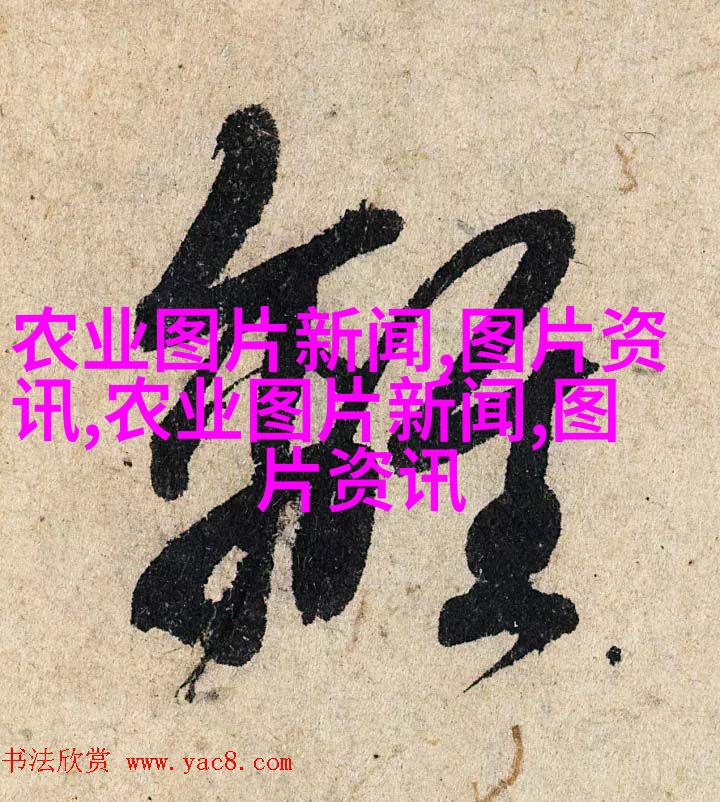 农业图片新闻,图片资
讯,农业图片新闻,图
片资讯
书法欣赏 www.yac8.com